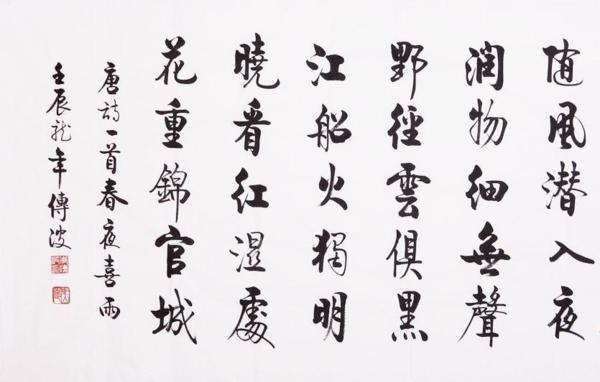 随風潜入夜
潤物細無聲
野徑雲俱黑
江船火獨明
曉看紅濕處
花重錦官城
唐詩一首春夜喜雨
壬辰龍年傳波